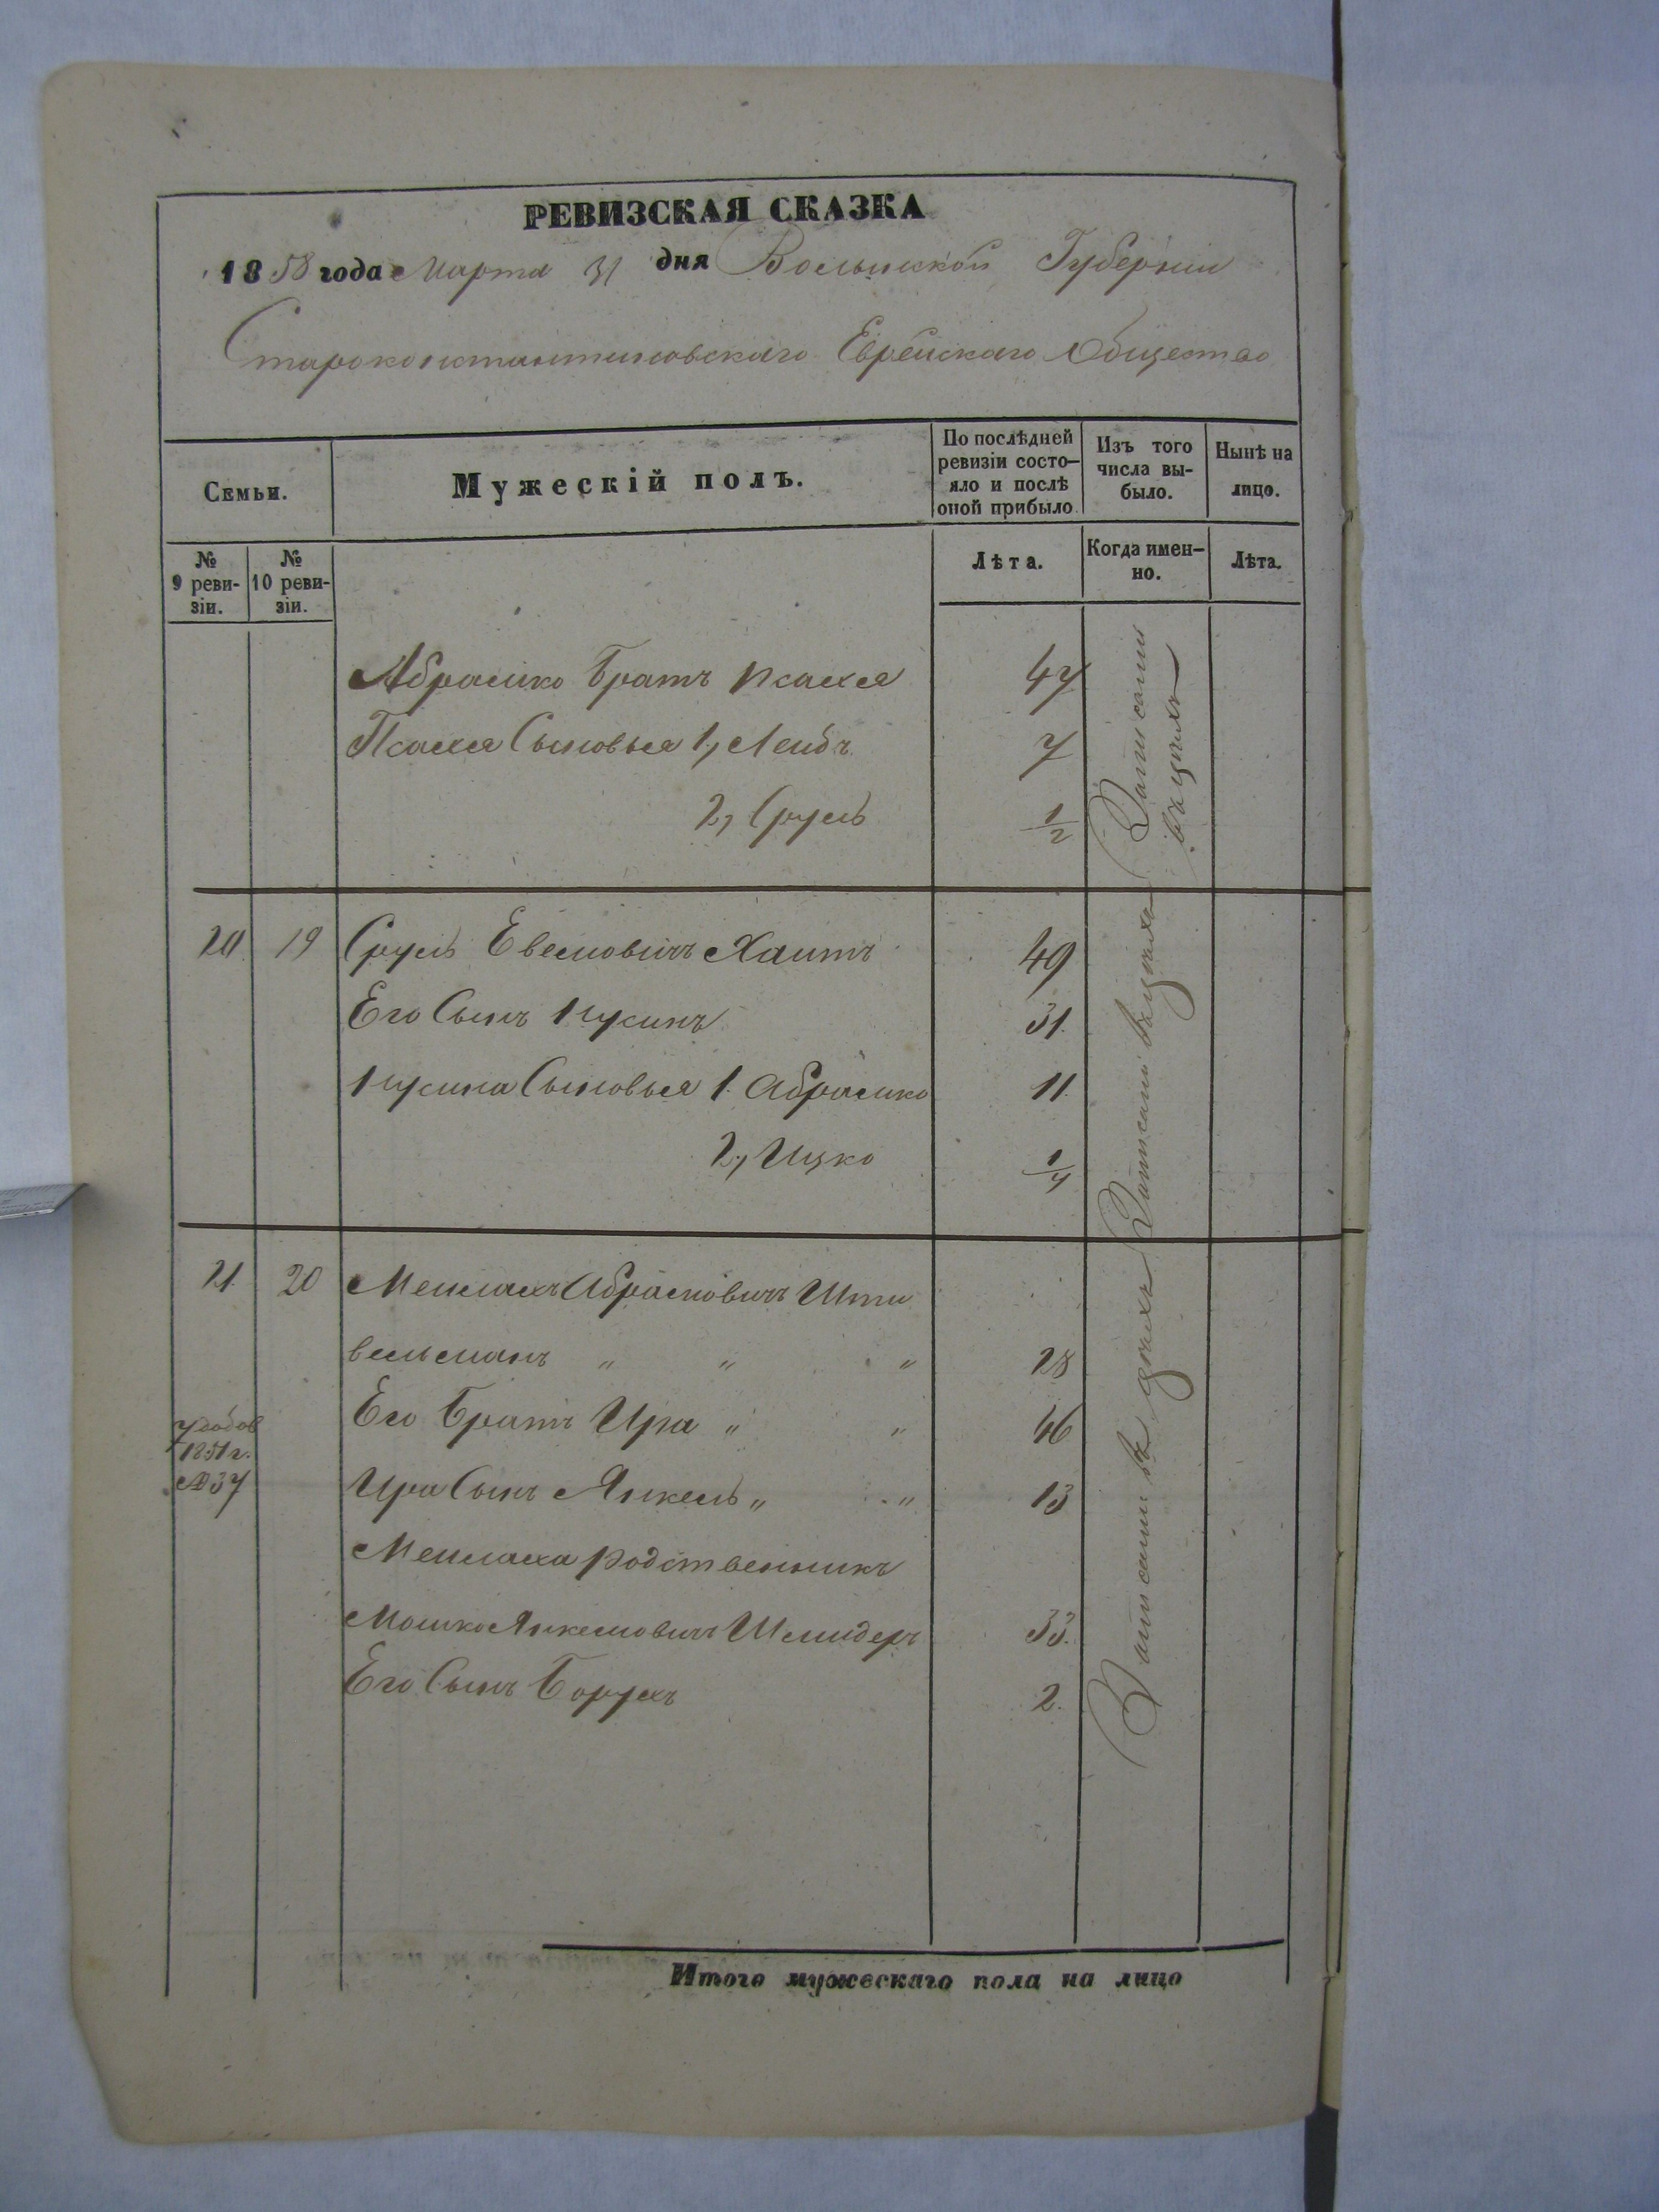 РЕВИЗСКАЯ СКАЗКА
1858 года Марта 31 дня Волынской Губернии
Староконстантиновскаго Еврейскаго Общества
Семьи.
Мужескій полъ.
По послѣдней ревизіи состо-яло и послѣ оной прибыло.
Изъ того числа вы-было.
Нынѣ на лицо.
№ 9 реви-зіи.
№ 10 реви-зіи.
Лѣта.
Когда имен-но.
Лѣта.
Абрамко братъ Псахся 47
Псахся Сыновья 1, Лейбъ 7
2, Сруль 1/2
Записани въ цехъ
20 19 Сруль Евелювичъ Хаитъ 49
Его Сынъ Нусинъ 31.
Нусина Сыновья 1. Абрамко 11.
2, Ицко 1/4
Записани въ цехъ
21 20 Мейлахъ Абрамовичъ Шти
вельманъ " " " 28
Его братъ Ира " " 46
1851 г.
№ 37
Ира Сынъ Янкель " " 13
Мейлаха родственникъ
Мошко Янкелювичъ Шмидеръ 33.
Его Сынъ Борухъ 2.
Записани въ цехъ
Итого мужескаго пола на лицо